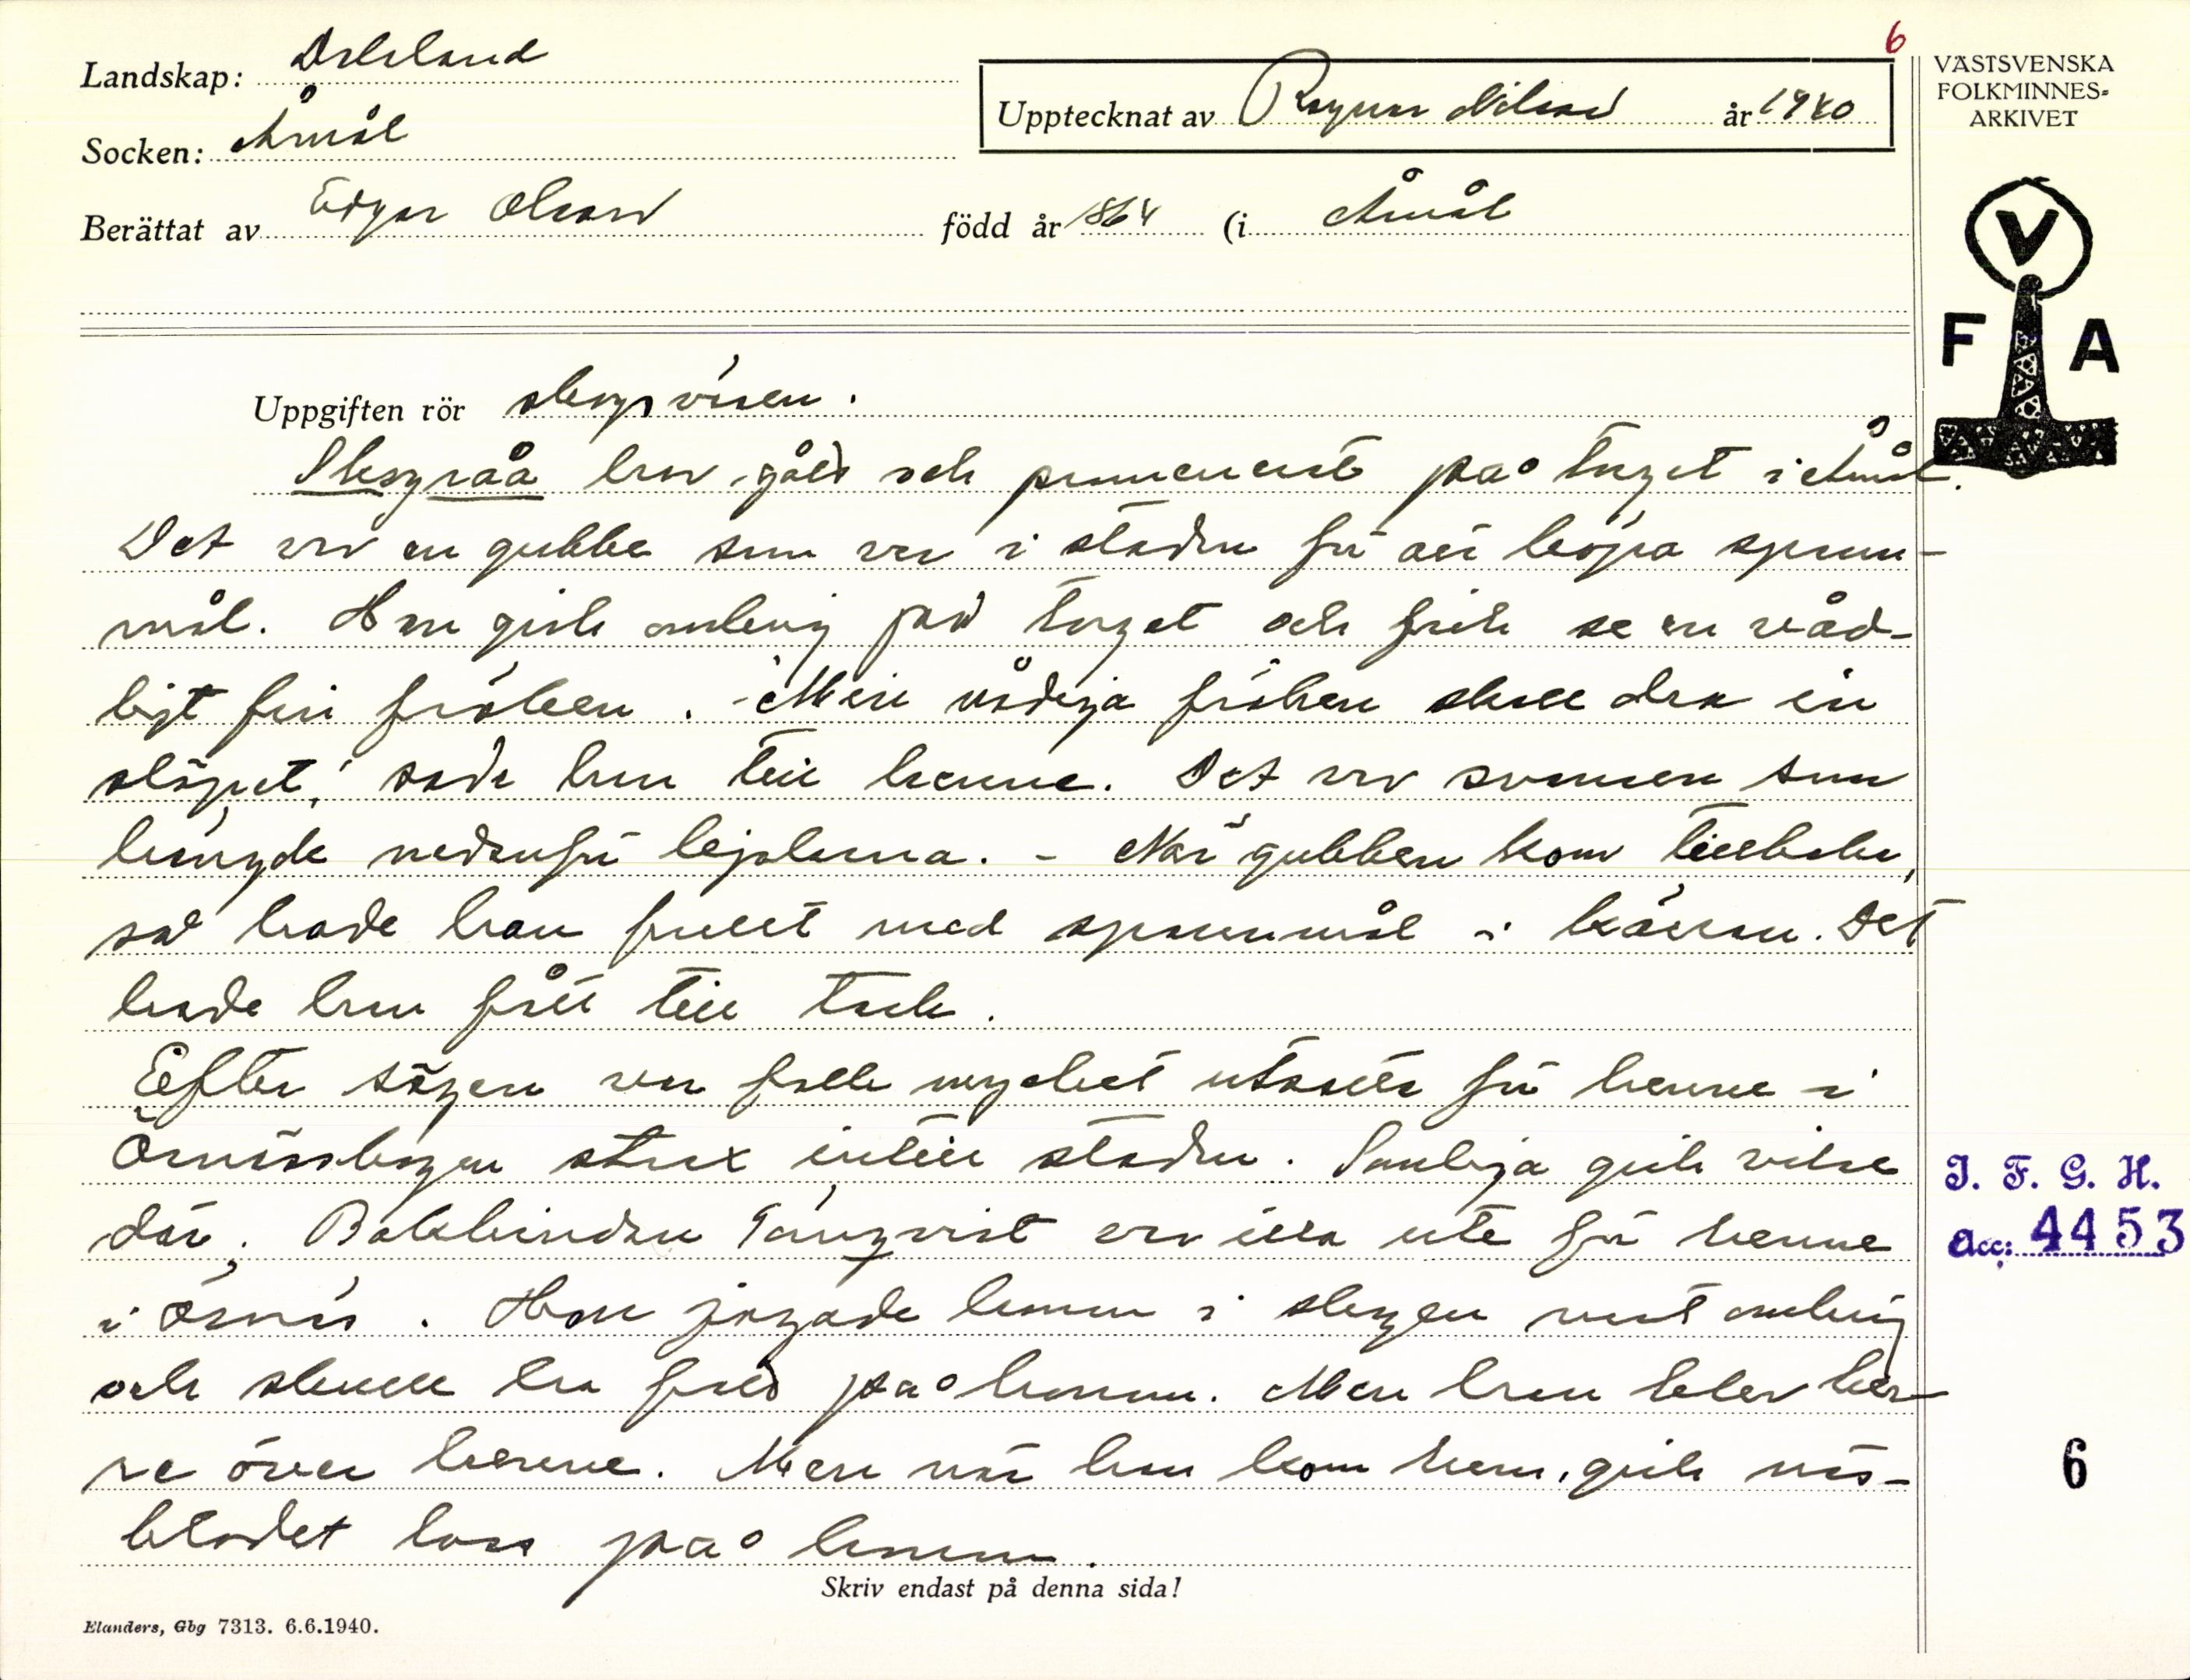 6
Landskap: Dalsland
Socken: Åmål
Upptecknat av Ragnar Nilsson år 1940
Berättat av Edgar Olsson född år 1864 (i Åmål
VÄSTSVENSKA
FOLKMINNES-
ARKIVET
V
F A
Uppgiften rör skogsväsen.
Skogsråa har gått och promenerat på torget i Åmål.
Det var en gubbe som var i staden för att köpa spann-
mål. Han gick omkring på torget och fick se en våd-
ligt fin fröken. - Min nådiga fröken skall dra in
släpet! sade han till henne. Det var svansen som
hängde nedanför kjolarna. - När gubben kom tillbaka,
så hade han fullt med spannmål i kärran. Det
hade han fått till tack.
Efter sägen var folk mycket utsatta för henne i
Örnässkogen strax intill staden. Somliga gick vilse
där. Bokbindare Tanqvist var illa ute för henne
i Örnäs. Hon jagade honom i skogen runt omkring
och skulle ha fatt på honom. Men han blev her-
re över henne. Men när han kom hem, gick näs-
blodet loss på honom.
Skriv endast på denna sida!
Elanders, Gbg 7313. 6.6.1940.
I. F. G. H.
acc: 4453
6